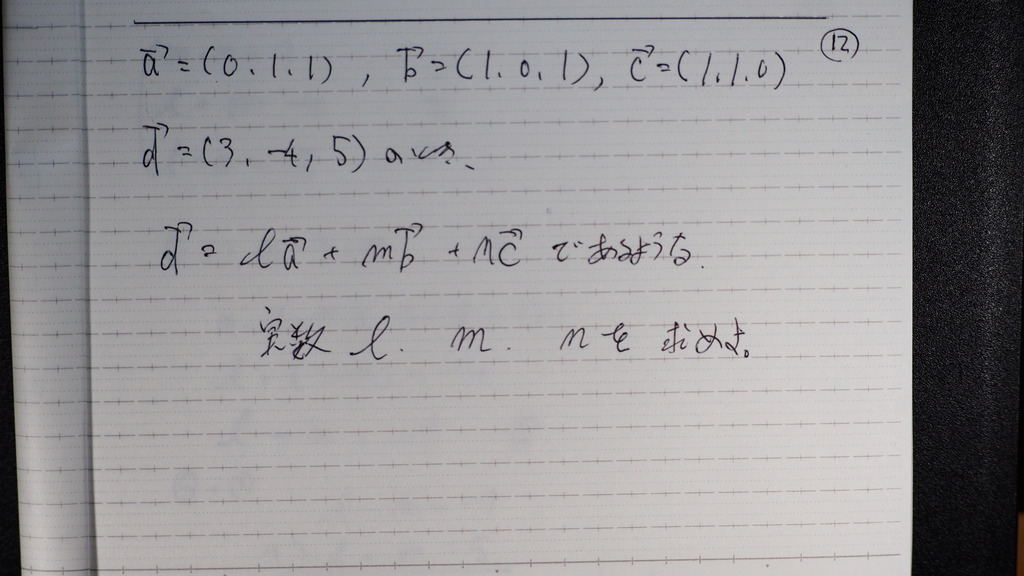 a⃗=(0.1.1), b⃗=(1.0.1), c⃗=(1.1.0) ⑫
d⃗=(3, -4, 5) のとき、
d⃗ = la⃗ + mb⃗ + nc⃗ であるような.
実数 l. m. nを 求めよ。